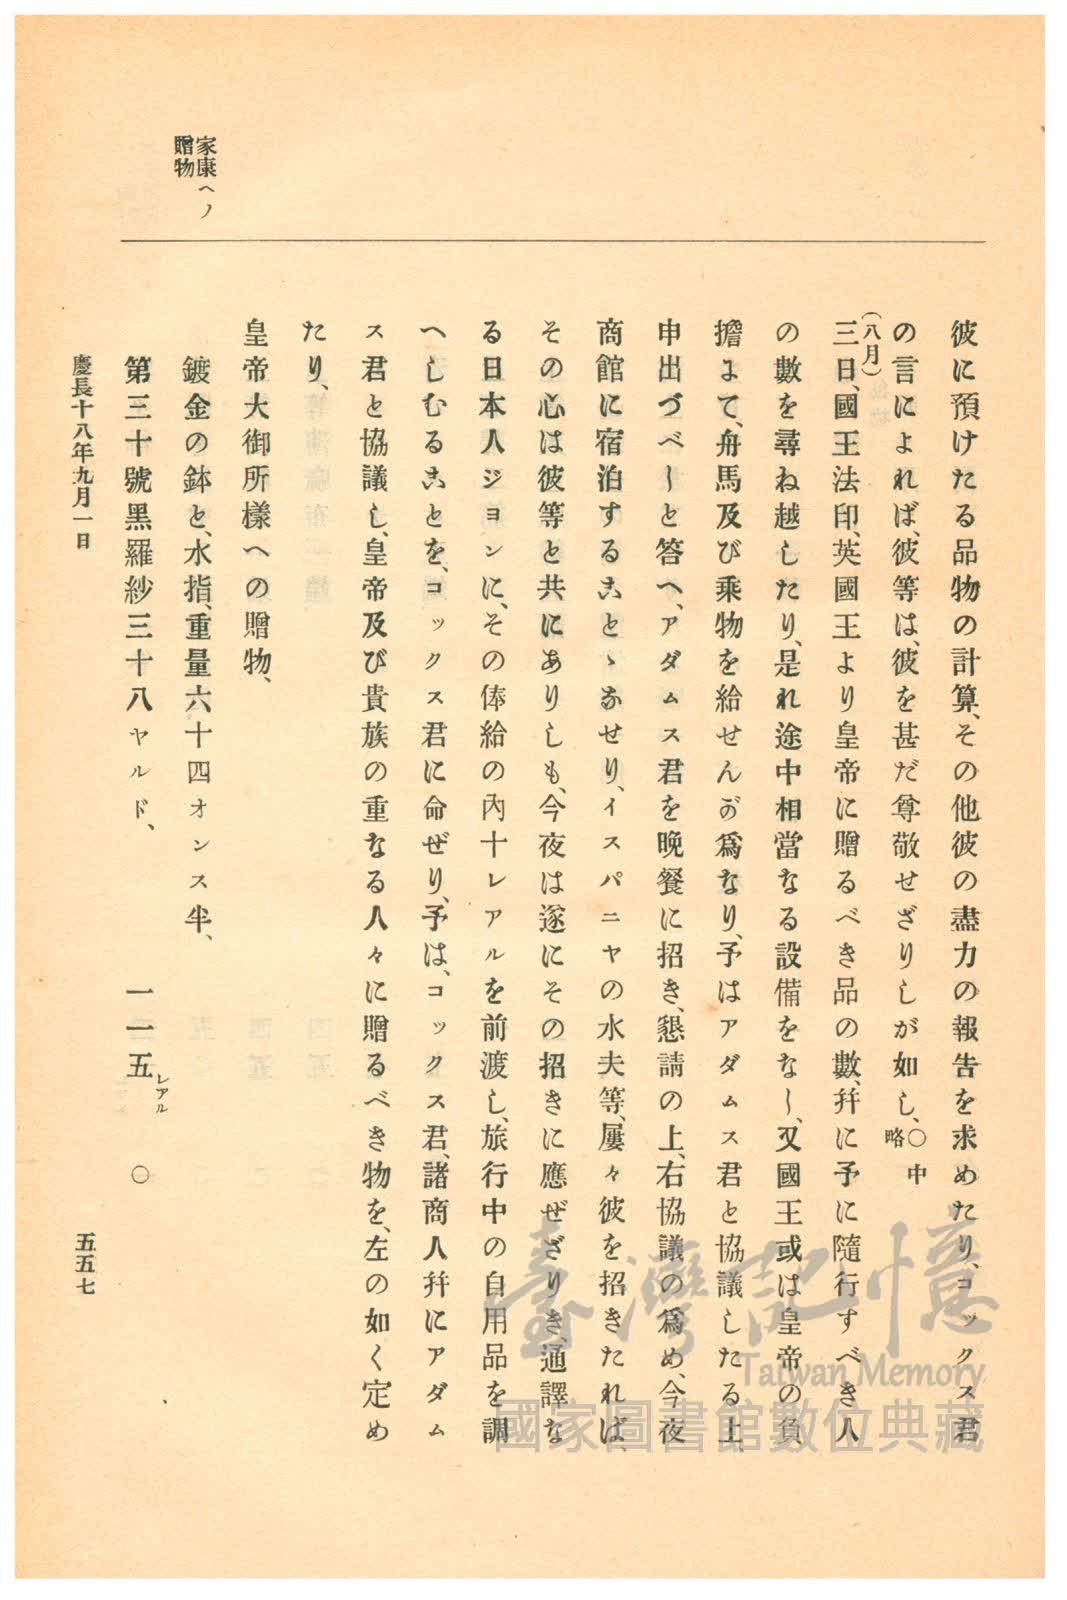 家康ヘノ
贈物
彼に預けたる品物の計算、その他彼の盡力の報告を求めたり、コックス君
の言によれば、彼等は、彼を甚だ尊敬せざりしが如し、〇中略
(八月)
三日、國王法印、英國王より皇帝に贈るべき品の數、幷に予に隨行すべき人
の數を尋ね越したり、是れ途中相當なる設備をなし、又國王或は皇帝の負
擔よて、舟馬及び乘物を給せんが爲なり、予はアダムス君と協議したる上、
申出づべしと答へ、アダムス君を晩餐に招き、懇請の上、右協議の爲め、今夜
商館に宿泊することゝなせり、イスパニヤの水夫等、屢々彼を招きたれば、
その心は彼等と共にありしも、今夜は遂にその招きに應ぜざりき、通譯な
る日本人ジョンに、その俸給の內十レアルを前渡し、旅行中の自用品を調
へしむることを、コックス君に命ぜり、予は、コックス君、諸商人幷にアダム
ス君と協議し、皇帝及び貴族の重なる人々に贈るべき物を、左の如く定め
たり、
皇帝大御所樣への贈物、
鍍金の鉢と、水指、重量六十四オンス半、
第三十號黑羅紗三十八ヤルド、 一一五レアル 〇
慶長十八年九月一日 五五七
臺灣記憶
Taiwan Memory
國家圖書館數位典藏